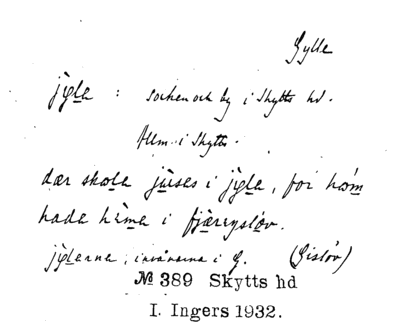 Gylle
jỳla : socken och by i Skytts hd.
Allm. i Skytts.
dær skola jùses i jỳla, for hom
hade hème i fjæreysløv.
jỳlarna, invånarna i G. (Gisløv)
№ 389 Skytts hd
I. Ingers 1932.